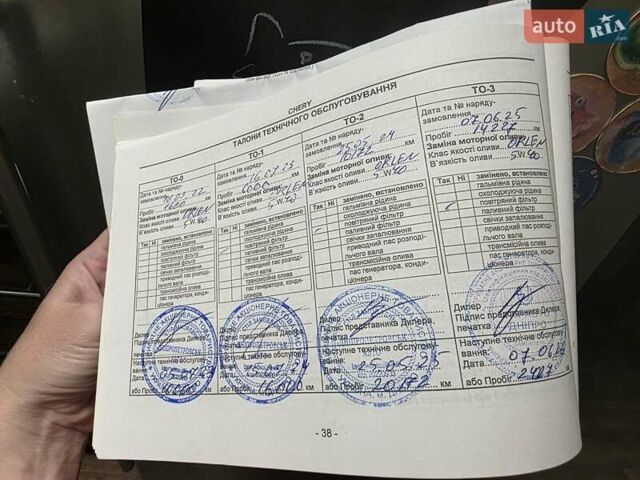 auto RIA
CHERY
ТАЛОНИ ТЕХНІЧНОГО ОБСЛУГОВУВАННЯ
ТО-0
Дата та № наряду-
замовлення
Пробіг км
Заміна моторної оливи
Клас якості оливи ORLEN
В'язкість оливи 5W40
Так Ні замінено, встановлено
гальмівна рідина
охолоджуюча рідина
повітряний фільтр
паливний фільтр
свічки запалювання
приводний пас розпо-
дільчого вала
трансмісійна олива
пас генератора, конди-
ціонера
Дилер
Підпис представника Дилера,
печатка
Наступне технічне обслугову-
вання:
Дата
або Пробіг
ТО-1
Дата та № наряду-
замовлення 16.07.23
Пробіг км
Заміна моторної оливи
Клас якості оливи ORLEN
В'язкість оливи 5W40
Так Ні замінено, встановлено
гальмівна рідина
охолоджуюча рідина
повітряний фільтр
паливний фільтр
свічки запалювання
приводний пас розподі-
льчого вала
трансмісійна олива
пас генератора, конди-
ціонера
Дилер
Підпис представника Дилера,
печатка
Наступне технічне обслугову-
вання:
Дата
або Пробіг км
ТО-2
Дата та № наряду-
замовлення 25.05.24
Пробіг 10172 км
Заміна моторної оливи
Клас якості оливи ORLEN
В'язкість оливи 5W40
Так Ні замінено, встановлено
гальмівна рідина
охолоджуюча рідина
повітряний фільтр
паливний фільтр
свічки запалювання
приводний пас розподі-
льчого вала
трансмісійна олива
пас генератора, конди-
ціонера
Дилер
Підпис представника Дилера,
печатка
Наступне технічне обслугову-
вання:
Дата 25.05.25
або Пробіг 20172 км
ТО-3
Дата та № наряду-
замовлення 07.06.25
Пробіг 14.227 км
Заміна моторної оливи
Клас якості оливи ORLEN
В'язкість оливи 5W40
Так Ні замінено, встановлено
гальмівна рідина
охолоджуюча рідина
повітряний фільтр
паливний фільтр
свічки запалювання
приводний пас розподі-
льчого вала
трансмісійна олива
пас генератора, конди-
ціонера
Дилер
Підпис представника Дилера,
печатка
ДНІПРО
Наступне технічне обслугову-
вання:
Дата 07.06.26
або Пробіг км
- 38 -